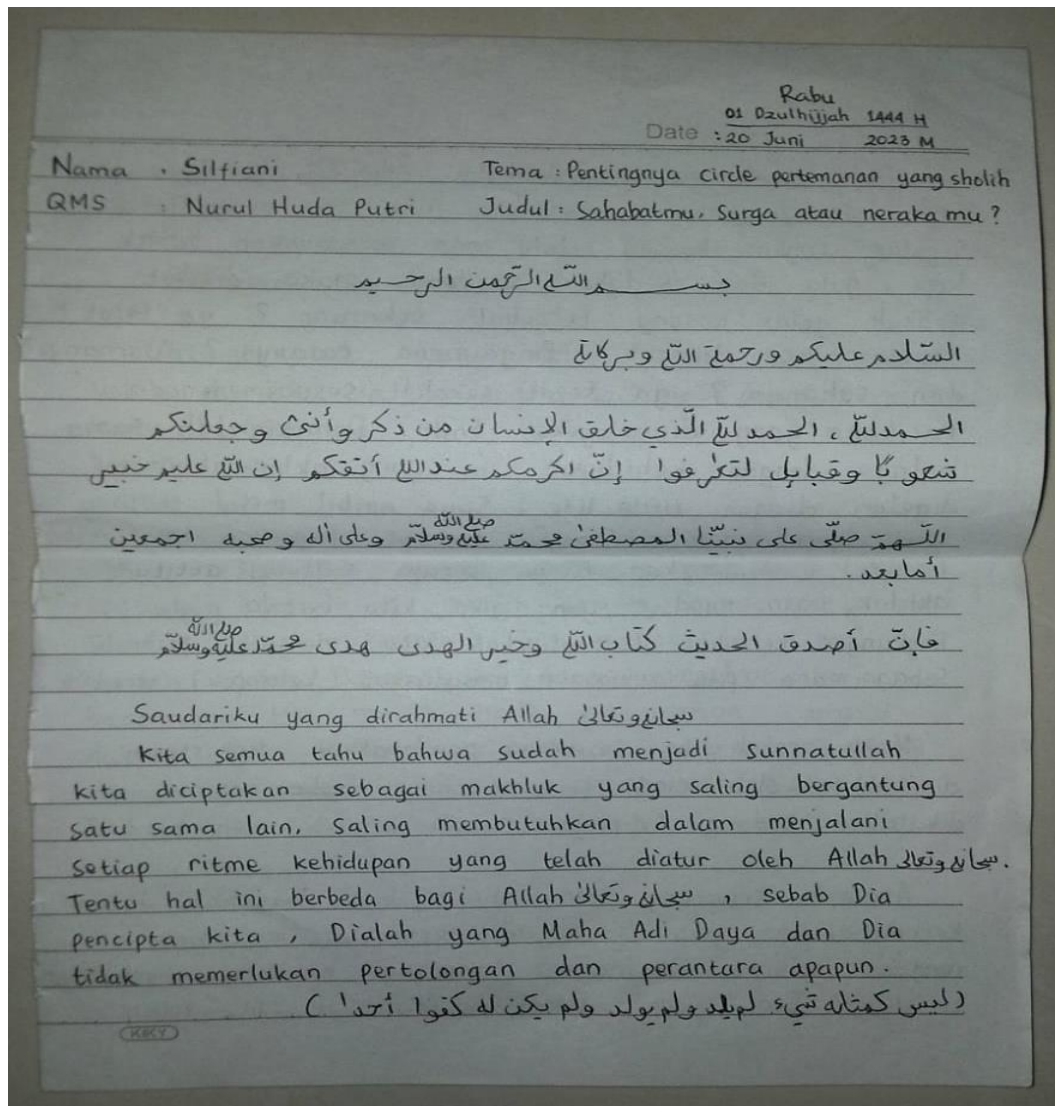 Rabu
01 Dzulhijjah 1444 H
Date : 20 Juni 2023 M
Nama : Silfiani Tema : Pentingnya circle pertemanan yang sholih
QMS : Nurul Huda Putri Judul : Sahabatmu, Surga atau neraka mu ?
بسم الله الرحمن الرحيم
السلام عليكم ورحمة الله وبركاته
الحمدلله ، الحمد لله الّذي خلق الإنسان من ذكر وأنثى وجعلنكم
شعوبًا وقبايل لتعرفوا إنّ اكرمكم عند الله أتقكم إن الله عليم خبير
اللّهمّ صلّى على نبيّنا المصطفى محمّد صلى الله عليه وسلّم وعلى أله وصحبه اجمعين
أما بعد .
فإنّ أصدق الحديث كتاب الله وخير الهدى هدى محمّد صلى الله عليه وسلّم
Saudariku yang dirahmati Allah سبحانه وتعالى
Kita semua tahu bahwa sudah menjadi sunnatullah
kita diciptakan sebagai makhluk yang saling bergantung
satu sama lain, saling membutuhkan dalam menjalani
setiap ritme kehidupan yang telah diatur oleh Allah سبحانه وتعالى .
Tentu hal ini berbeda bagi Allah سبحانه وتعالى , sebab Dia
pencipta kita , Dialah yang Maha Adi Daya dan Dia
tidak memerlukan pertolongan dan perantara apapun .
( ليس كمثله شيء لم يلد ولم يولد ولم يكن له كفوا أحدا )
KIKY